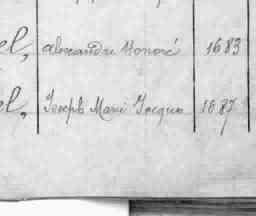 el, alexandre honoré 1683
el, Joseph Marie Jacques 1687